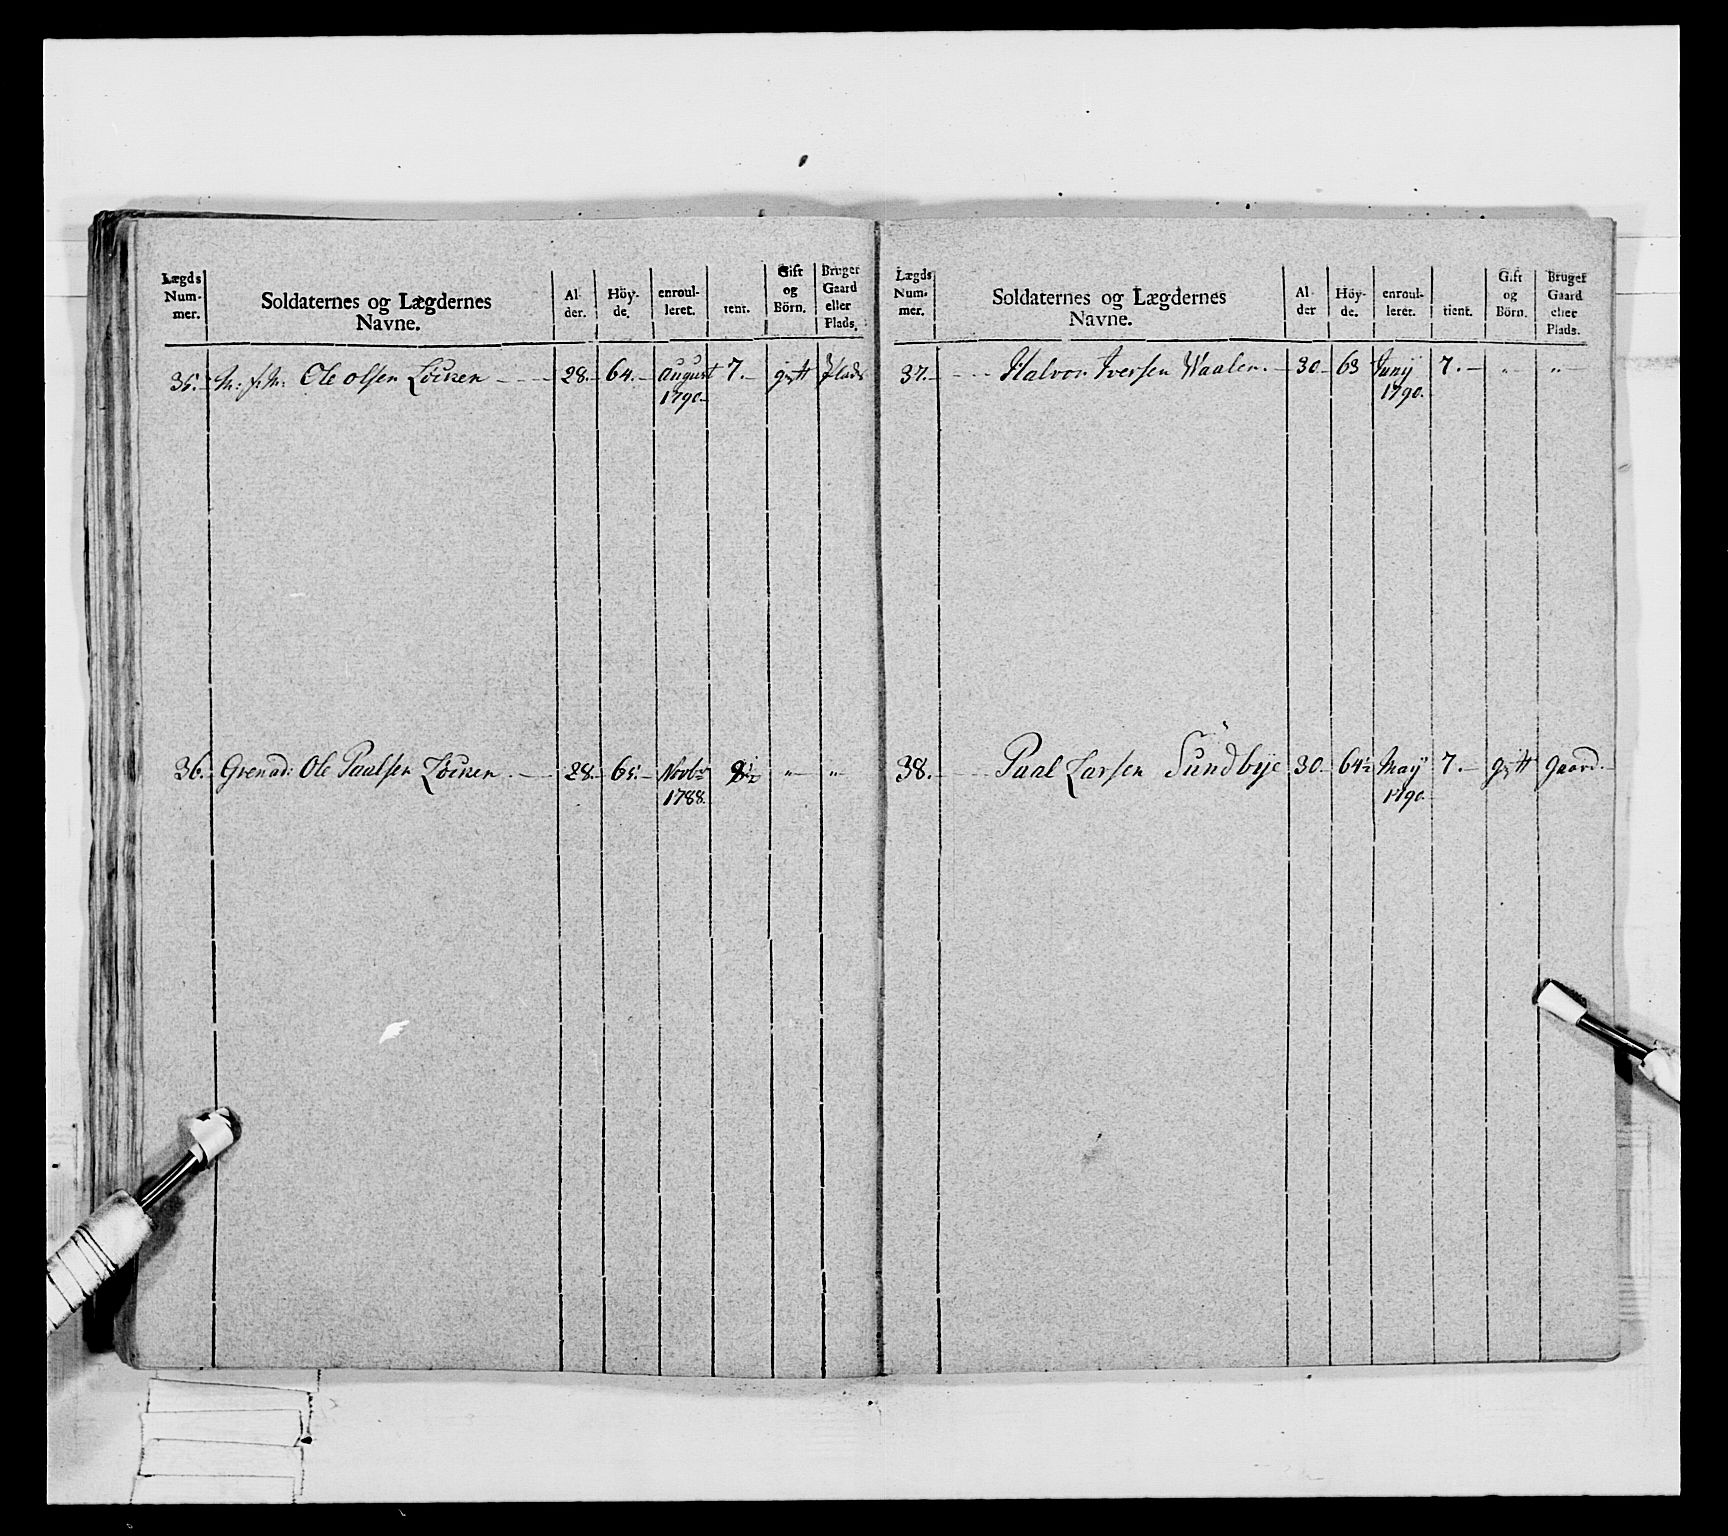 Lægds Num- mer.
Soldaternes og Lægdernes Navne.
Al- der.
Höy- de.
enroul- leret.
tient.
Gift og Börn.
Bruger Gaard eller Plads.
35. Ole Olsen 28. 64. August 7. gift Plads
1790.
36. Grenad: Ole Paalsen 28. 65. Novbr „ „
1788.
Lægds Num- mer.
Soldaternes og Lægdernes Navne.
Al- der
Höy- de.
enroul- leret.
tient.
Gift og Börn.
Bruger Gaard eller Plads.
37. Halvor Iversen Waalen. 30 63 Junij 7. „ „
1790.
38. Paal Larsen Sundbye 30 64½ Maij 7. gift gaard.
1790.